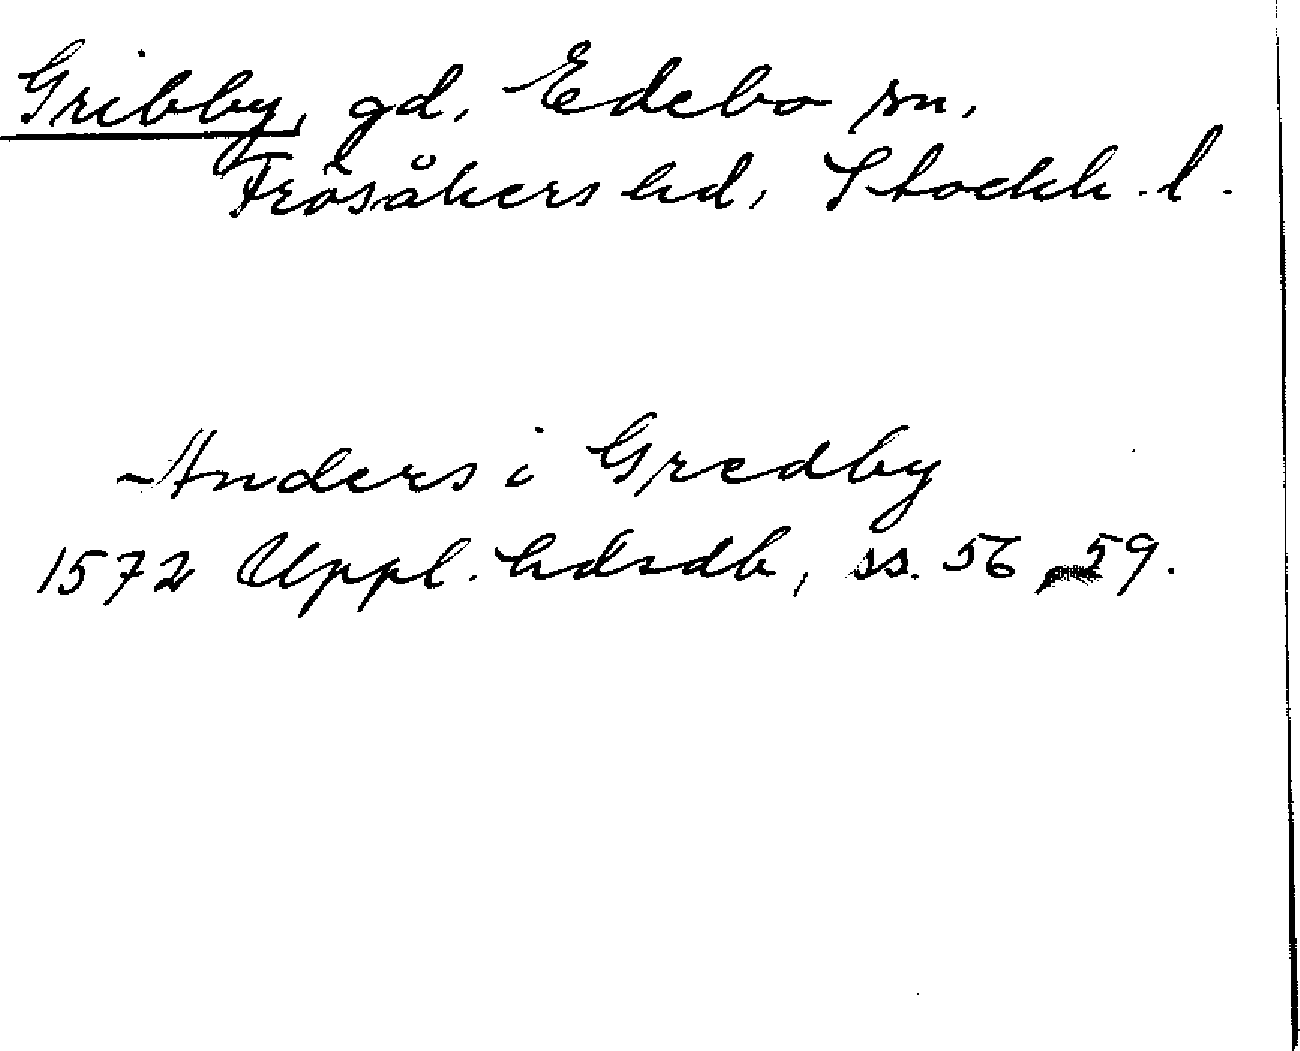 Gribby, gd, Edebo sn,
Frösåkers hd, Stockh. l.
Anders i Gredby
1572 Uppl. hdsdb, ss. 56, 59.